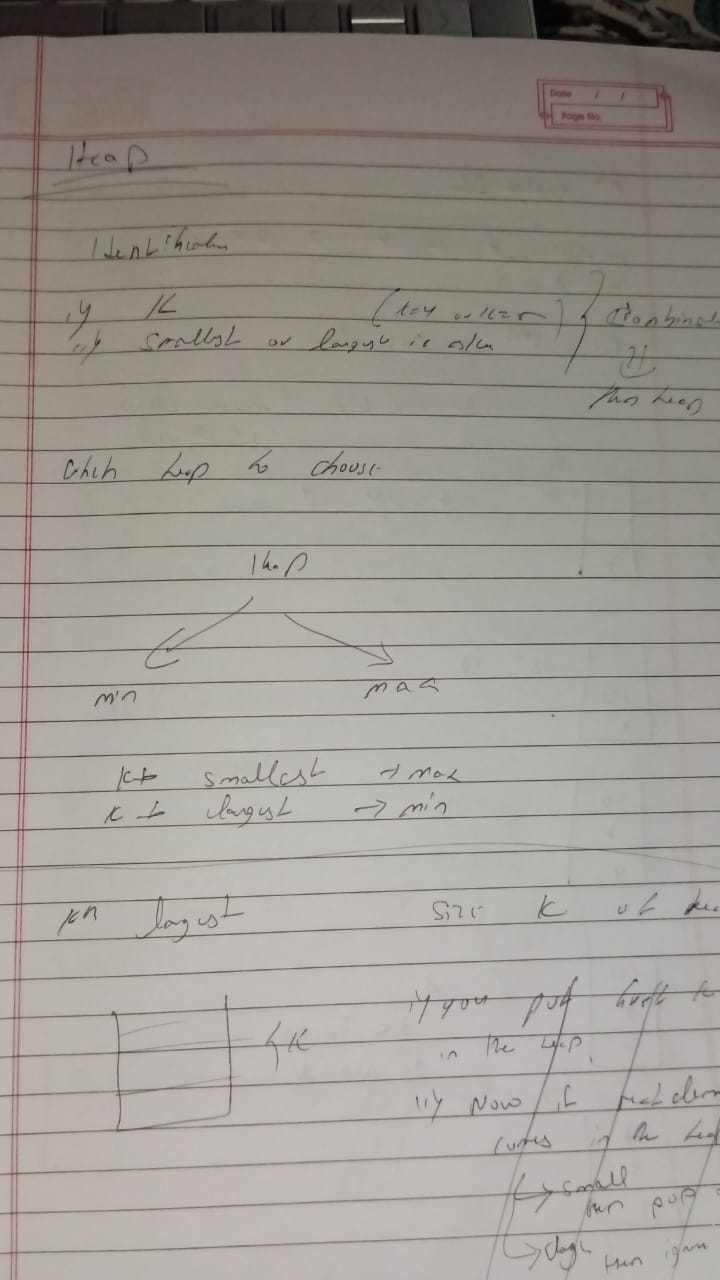 Date / /
Page No.
Heap
Identification
i) K
ii) smallest or largest is
Combined
then heap
heap to choose
Heap
min
max
Kth smallest → max
Kth largest → min
Kth largest
size K of
K
i) you put first K
in the heap.
ii) Now if next
comes in the
→ small
then pop
then